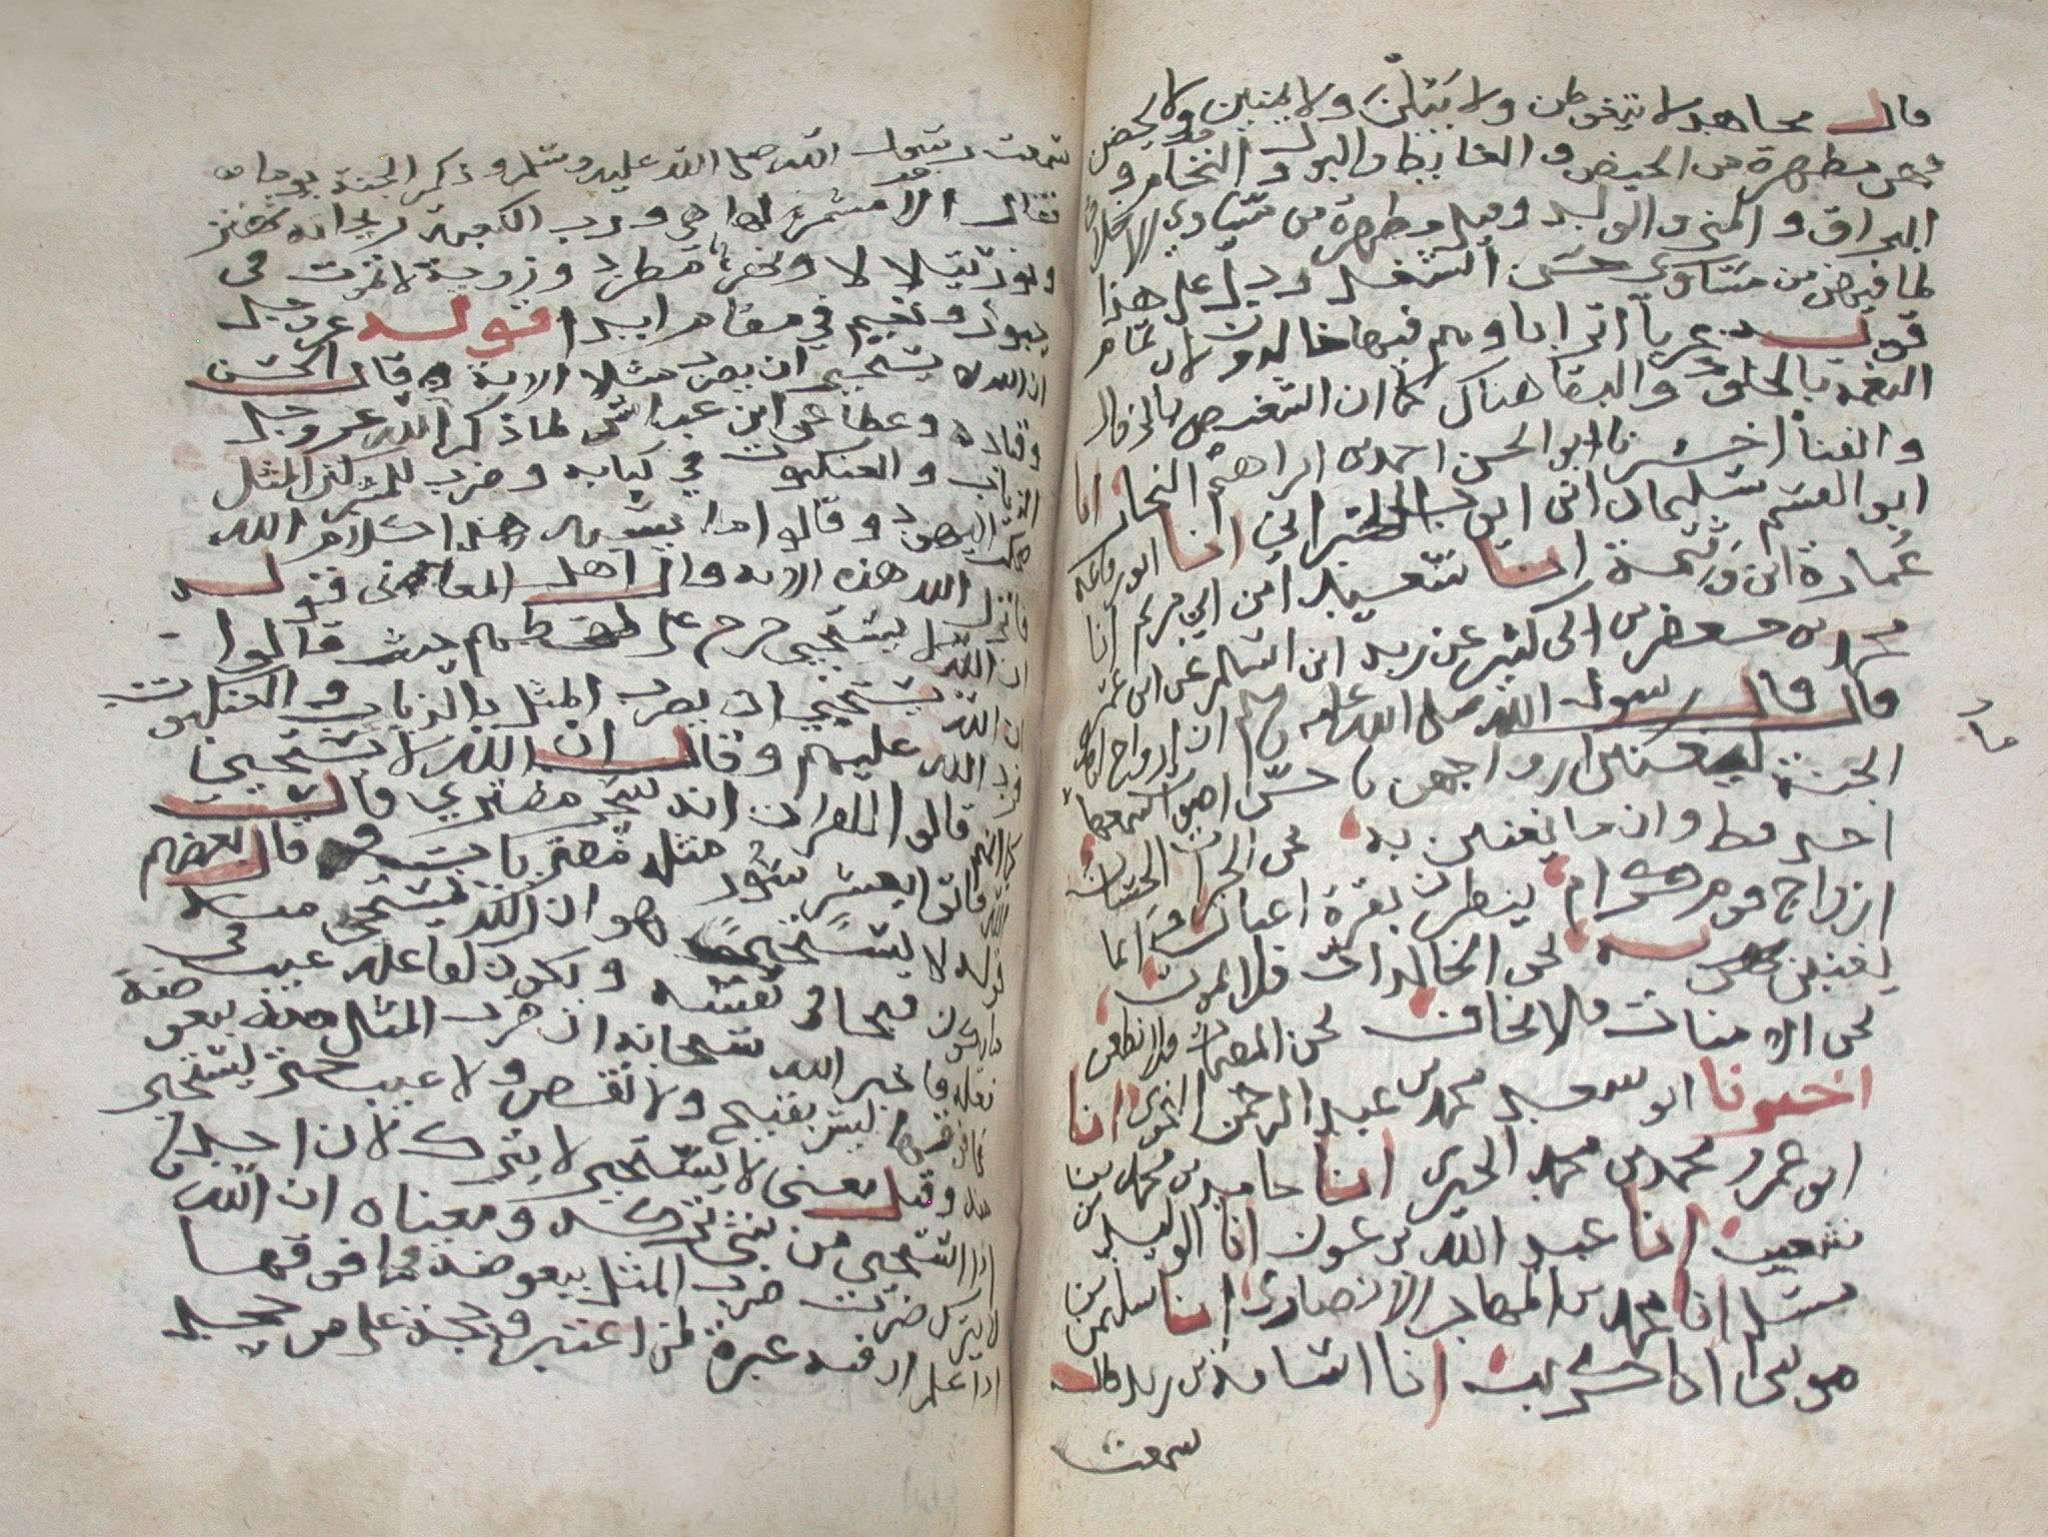 قال مجاهد لا يتغوطن ولا يبلن ولا يمنين ولا يحضن
فهن مطهرة من الحيض و الغايط والبول و النخام و
البزاق و المني و الولد وقيل مطهرة من مساوي الاخلاق
لما فيهن من حسن التبعل و دل على هذا
قوله عربا اترابا وهم فيها خالدون لان تمام
النعمة بالخلود والبقا هناك كما ان التنغيص بالزوال
والفنا اخبرنا ابو الحسن احمد بن ابراهيم النجار انا
ابو القسم سليمان ابن ايوب الطبراني انا ابو رفاعة
عمارة ابن وثيمة انا سعيد ابن ابي مريم انا
محمد بن جعفر بن ابي كثير عن زيد ابن اسلم عن ابن عمر
قال قال رسول الله صلى الله عليه وسلم ان ازواج اهل
الجنة ليغنين ازواجهن باحسن اصوات سمعها
احد قط وان مما يغنين به نحن الخيرات الحسان
ازواج قوم كرام ينظرن بقرة اعيان وان مما
يغنين به نحن الخالدات فلا نمتن
نحن الامنات فلا نخاف نحن المقيمات فلا نظعن
اخبرنا ابو سعيد محمد بن عبد الرحمن النحوي انا
ابو عمرو محمد بن محمد الحيري انا حامد بن محمد بن
شعيب انا عبد الله بن عون انا الوليد بن
مسلم انا محمد بن المهاجر الانصاري انا سليمن بن
موسى انا كريب انا اسامة بن زيد قال
سمعت
سمعت رسول الله صلى الله عليه وسلم و ذكر الجنة يوما
فقال الا مشمر لها هي و رب الكعبة ريحانة تهتز
ونور يتلالا ونهر مطرد وزوجة لا تموت في
حبور و نعيم في مقام ابدا قوله عز وجل
ان الله لا يستحيي ان يضرب مثلا الاية قال الحسن
وقتادة وعطا عن ابن عباس لما ذكر الله عز وجل
الذباب و العنكبوت في كتابه و ضرب للمشركين المثل
ضحك اليهود و قالوا ما يشبه هذا كلام الله
فانزل الله هذه الاية وقال اهل المعاني قوله
ان الله لا يستحيي خرج على لفظهم حيث قالوا
ان الله يستحيي ان يضرب المثل بالذباب و العنكبوت
فرد الله عليهم وقال ان الله لا يستحيي
قالوا القران انه سحر مفترى قال
فاتوا بعشر سور مثله مفتريات قال بعضهم
قوله لا يستحيي هو ان الله يستحي منه
قبيحا في نفسه ويكون لفاعله عيب في
فعله فاخبر الله سبحانه ان ضرب المثل منه ببعوضة
فما فوقها ليس بقبيح ولا نقص ولا عيب حتى يستحي
منه وقيل معنى لا يستحيي لا يترك لان احدنا
اذا استحيى من شي تركه و معناه ان الله
لا يترك ضرب المثل ببعوضة فما فوقها
اذا علم ان فيه عبرة لمن اعتبر و حجة على من جحد